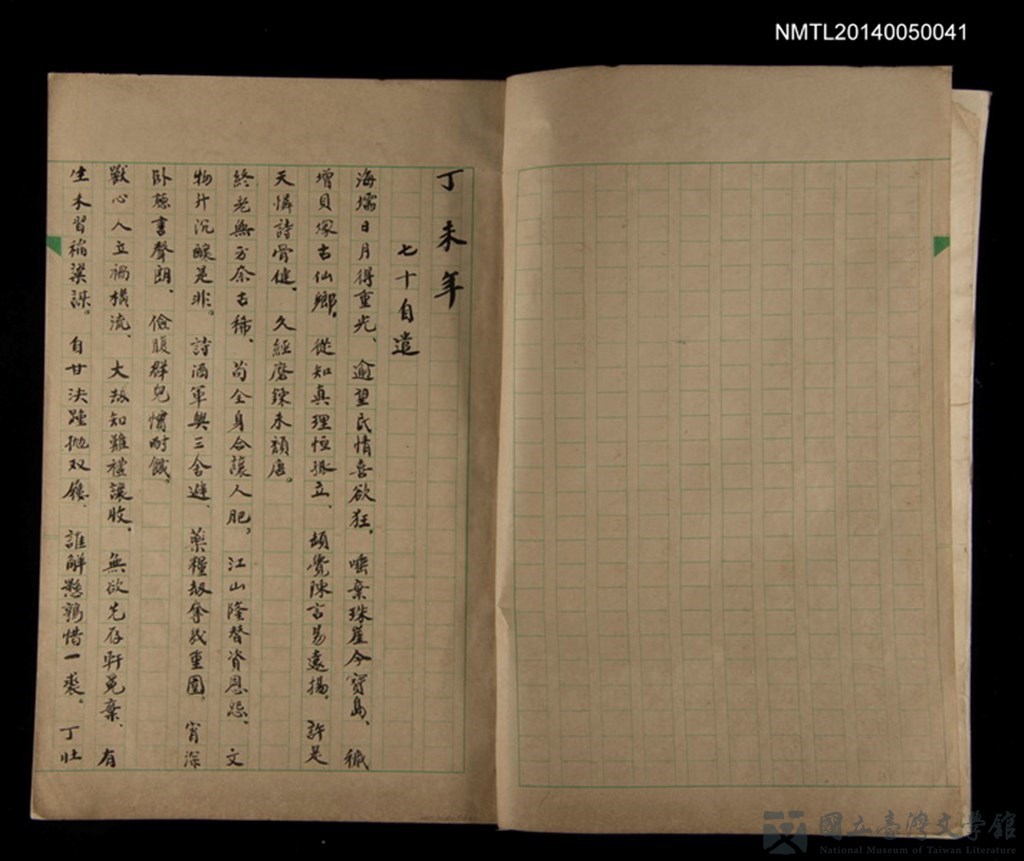 NMTL20140050041
丁未年
七十自遣
海壖日月得重光、逾望民情喜欲狂。唾棄珠崖今寶島、穢
增貝塚古仙鄉。從知真理恒孤立、頓覺陳言易遠揚。許是
天憐詩骨健、久經磨鍊未頹唐。
終老無方奈古稀、苟全身合讓人肥。江山隆替資恩怨、文
物升沉釀是非。詩酒軍興三舍避、藥糧劫奪幾重圍。宵深
臥聽書聲朗、儉腹群兒慣耐饑。
獸心人立禍橫流、大劫知難禮讓收。無欲先存軒冕棄、有
生未習稻粱謀。自甘決踵拋双屨、誰解懸鶉惜一裘。丁壯
國立臺灣文學館
National Museum of Taiwan Literature